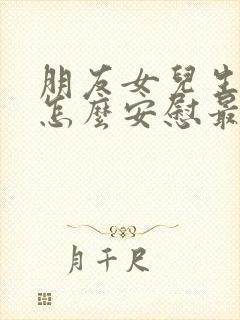 朋友女兒生
怎麼安慰最
月千尺